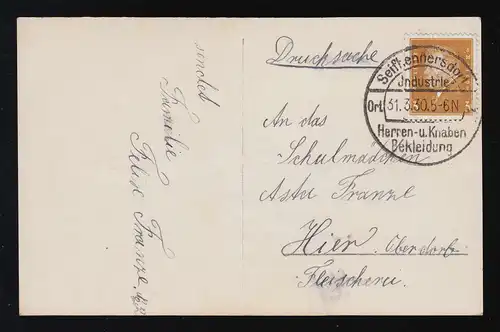 sendet
Familie
Felix Franze.
Drucksache
Seifhennersdorf
Industrie
Ort 31.3.30.5-6N
Herren-u. Knaben
Bekleidung
An das
Schulmädchen
Asta Franze
Hier. Oberdorf
Fleischerei